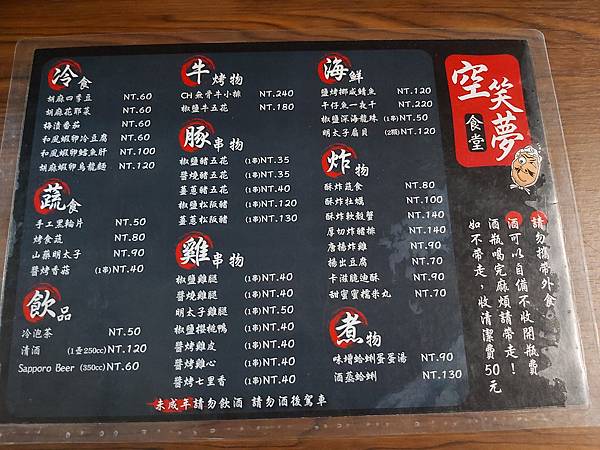 冷食
胡麻四季豆 NT.60
胡麻花耶菜 NT.60
梅漬番茄 NT.60
和風蝦卵冷豆腐 NT.60
和風蝦卵鱈魚肝 NT.100
胡麻蝦卵烏龍麵 NT.120
蔬食
手工黑輪片 NT.50
烤食蔬 NT.80
山藥明太子 NT.90
醬烤香菇 (1串)NT.40
飲品
冷泡茶 NT.50
清酒 (1壺250cc)NT.120
Sapporo Beer (350cc)NT.60
牛烤物
CH無骨牛小排 NT.240
椒鹽牛五花 NT.180
豚串物
椒鹽豬五花 (1串)NT.35
醬燒豬五花 (1串)NT.35
蔥蔥豬五花 (1串)NT.40
椒鹽松阪豬 (1串)NT.120
蔥蔥松阪豬 (1串)NT.130
雞串物
椒鹽雞腿 (1串)NT.40
醬燒雞腿 (1串)NT.40
明太子雞腿 (1串)NT.50
椒鹽櫻桃鴨 (1串)NT.40
醬烤雞皮 (1串)NT.40
醬烤雞心 (1串)NT.40
醬烤七里香 (1串)NT.40
海鮮
鹽烤挪威鯖魚 NT.120
午仔魚一夜干 NT.220
椒鹽深海龍珠 (1串)NT.50
明太子扇貝 (2顆)NT.120
炸物
酥炸蔬食 NT.80
酥炸牡蠣 NT.100
酥炸軟殼蟹 NT.140
厚切炸豬排 NT.140
唐揚炸雞 NT.90
揚出豆腐 NT.70
卡滋脆迪酥 NT.90
甜蜜蜜糯米丸 NT.70
煮物
味增蛤蜊蛋蛋湯 NT.90
酒蒸蛤蜊 NT.130
空笑夢
食堂
請勿攜帶外食。
酒可以自備不收開瓶費
酒瓶喝完麻煩請帶走!
如不帶走,收清潔費50元
未成年請勿飲酒 請勿酒後駕車